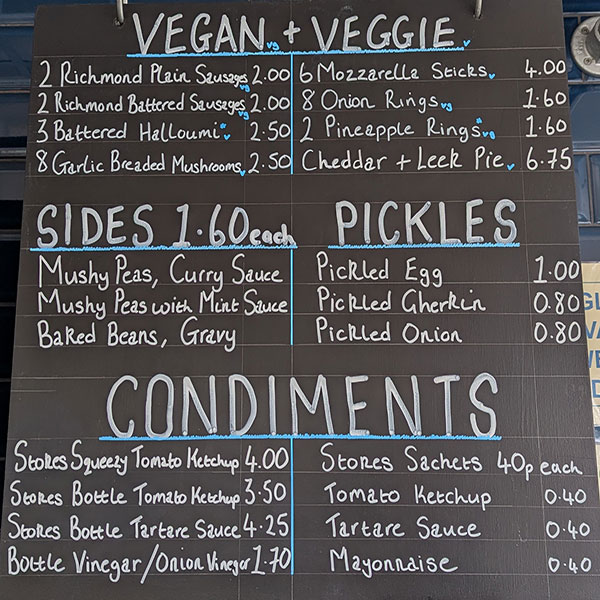 VEGAN vg + VEGGIE v
2 Richmond Plain Sausages vg 2.00
2 Richmond Battered Sausages vg 2.00
3 Battered Halloumi * v 2.50
8 Garlic Breaded Mushrooms v 2.50
6 Mozzarella Sticks v 4.00
8 Onion Rings vg 1.60
2 Pineapple Rings * vg 1.60
Cheddar + Leek Pie v 6.75
SIDES 1.60 each
Mushy Peas, Curry Sauce
Mushy Peas with Mint Sauce
Baked Beans, Gravy
PICKLES
Pickled Egg 1.00
Pickled Gherkin 0.80
Pickled Onion 0.80
CONDIMENTS
Stokes Squeezy Tomato Ketchup 4.00
Stokes Bottle Tomato Ketchup 3.50
Stokes Bottle Tartare Sauce 4.25
Bottle Vinegar/Onion Vinegar 1.70
Stokes Sachets 40p each
Tomato Ketchup 0.40
Tartare Sauce 0.40
Mayonnaise 0.40